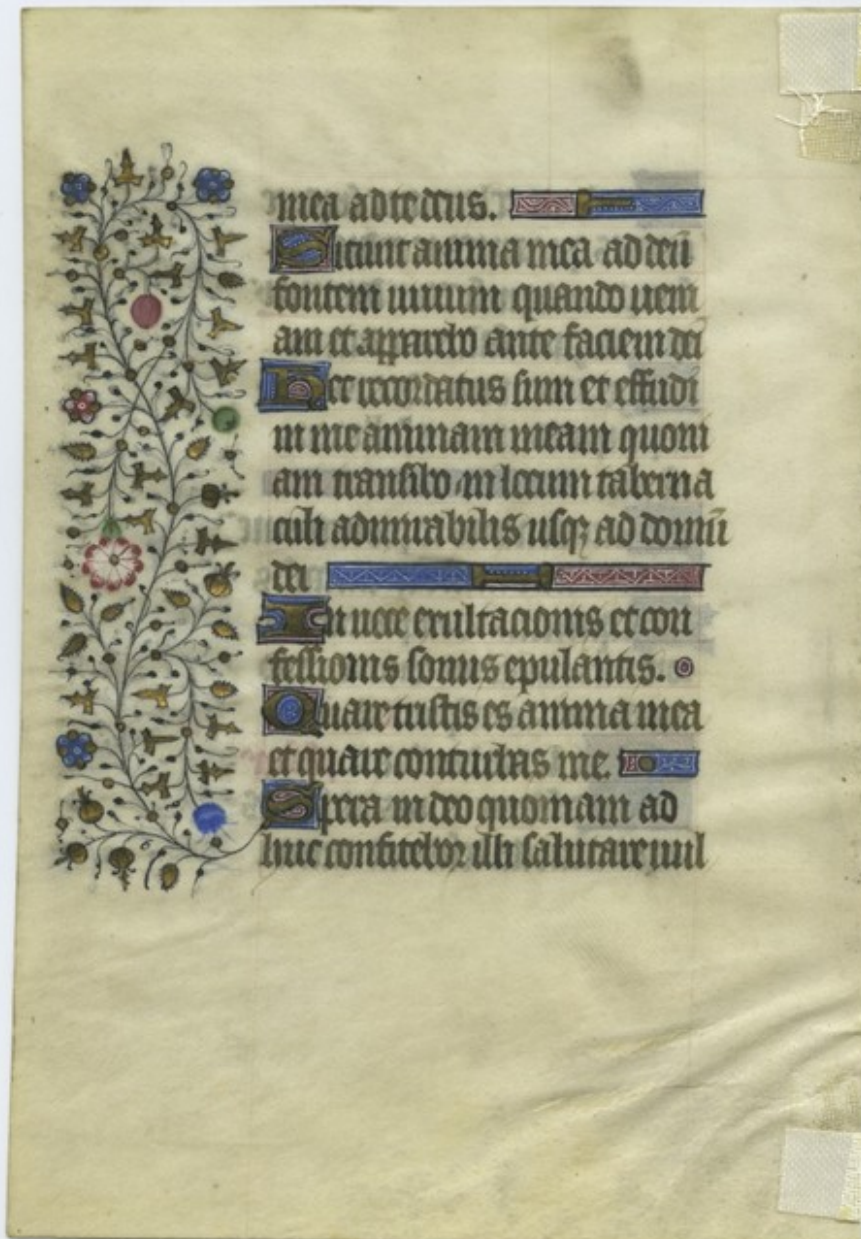 mea ad te deus.
Sitiuit anima mea ad deū
fontem uiuum quando ueni
am et apparebo ante faciem dei
Hec recordatus sum et effudi
in me animam meam quoni
am transibo in locum taberna
culi admirabilis usqꝫ ad domū
dei
In uoce exultacionis et con
fessionis sonus epulantis.
Quare tristis es anima mea
et quare conturbas me.
Spera in deo quoniam ad
huc confitebor illi salutare uul